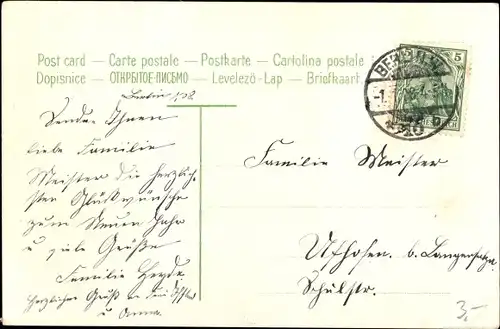 Post card — Carte postale — Postkarte — Cartolina postale
Dopisnice — ОТКРЫТОЕ ПИСЬМО — Levelező-Lap — Briefkaart
Berlin
5
BERLIN
Sende Ihnen
liebe Familie
Meister die herzlich-
sten Glückwünsche
zum Neuen Jahr
u viele Grüße
Familie Heyde
Herzlichen Gruß an
u Anna
Familie Meister
Ufhofen b. Langensalza
Schulstr.
3,-